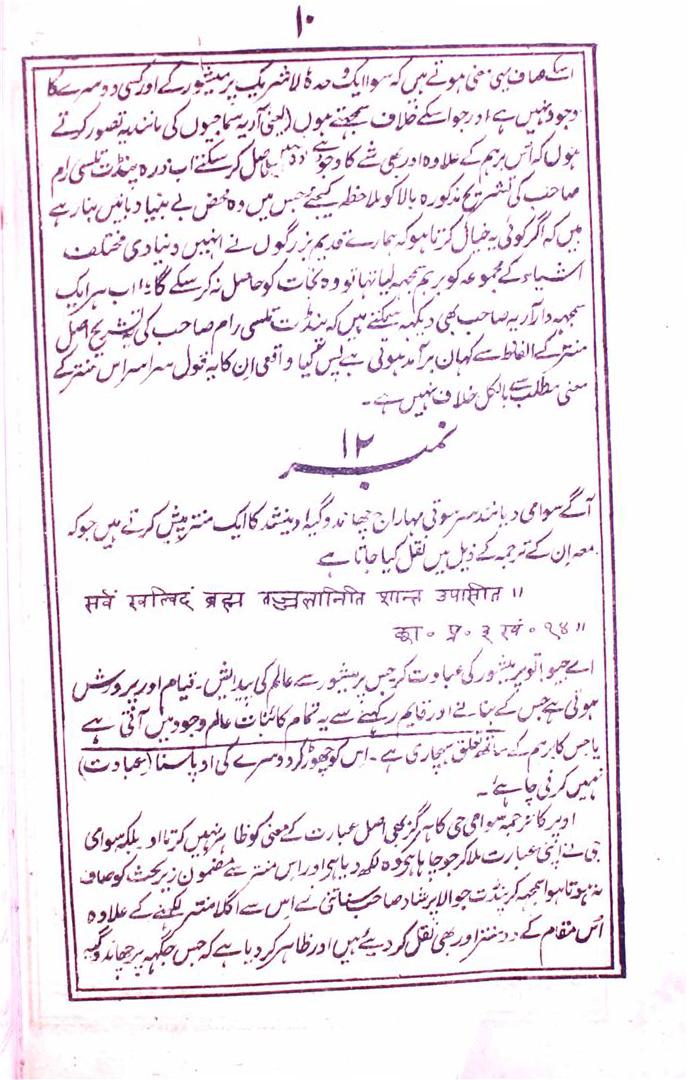 ۱۰
اسکے صاف یہی معنی ہوتے ہیں کہ سوا ایک وحدہٗ لاشریک پرمیشور کے اور کسی دوسرے کا
وجود نہیں ہے اور جو اسکے خلاف سمجھتے ہوں (یعنی آریہ سماجیوں کی مانند یہ تصور کرتے
ہوں کہ اُس برہم کے علاوہ اور بھی شے کا وجود ہے وہ حاصل کرسکتے اب ذرہ پنڈت تلسی رام
صاحب کی تشریح مذکورہ بالا کو ملاحظہ کیجئے جس میں وہ محض بے بنیاد باتیں بنا رہے
ہیں کہ اگر کوئی یہ خیال کرتا ہو کہ ہمارے قدیم بزرگوں نے انہیں دنیادی مختلف
اشیاء کے مجموعہ کو برہم سمجھ لیا تہا تو وہ نجات کو حاصل نہ کرسکے گا؛؛ اب ہر ایک
سمجھدار آریہ صاحب بھی دیکھ سکتے ہیں کہ پنڈت تلسی رام صاحب کی تشریح اصل
منتر کے الفاظ سے کہاں برآمد ہوتی ہے پس کیا واقعی اِن کا یہ قول سراسر اس منتر کے
معنی مطلب سے بالکل خلاف نہیں ہے۔
نمبر ۱۲
آگے سوامی دیانند سرسوتی مہاراج چھاندوگیہ اوپنشد کا ایک منتر پیش کرتے ہیں جو کہ
معہ ان کے ترجمہ کے ذیل میں نقل کیا جاتا ہے
सर्वं खल्विदं ब्रह्म तज्जलानिति शान्त उपासीत ॥
छा॰ प्र॰ ३ खं॰ १४॥
اے جیو! تو پرمیشور کی عبادت کر جس پرمیشور سے عالم کی پیدایش۔ قیام اور پرورش
ہوتی ہے جس کے بنانے اور قایم رکھنے سے یہ تمام کائنات عالم وجود میں آتی ہے
یا جس کا برہم کے ساتھ تعلق سہچاری ہے۔ اس کو چھوڑ کر دوسرے کی اوپاسنا (عبادت)
نہیں کرنی چاہئے۔
اوپر کا ترجمہ سوامی جی کا ہرگز بھی اصل عبارت کے معنی کو ظاہر نہیں کرتا اور بلکہ سوامی
جی نے اپنی عبارت ملا کر جو چاہا ہے وہ لکھ دیا ہے اور اس منتر سے مضمون زیر بحث کو صاف
نہ ہوتا ہوا سمجھ کر پنڈت جوالا پرشاد صاحب سناتنی نے اس سے اگلا منتر لکہنے کے علاوہ
اُس مقام کے دو منتر اور بھی نقل کر دیئے ہیں اور ظاہر کر دیا ہے کہ جس جگہہ پر چھاندوگیہ